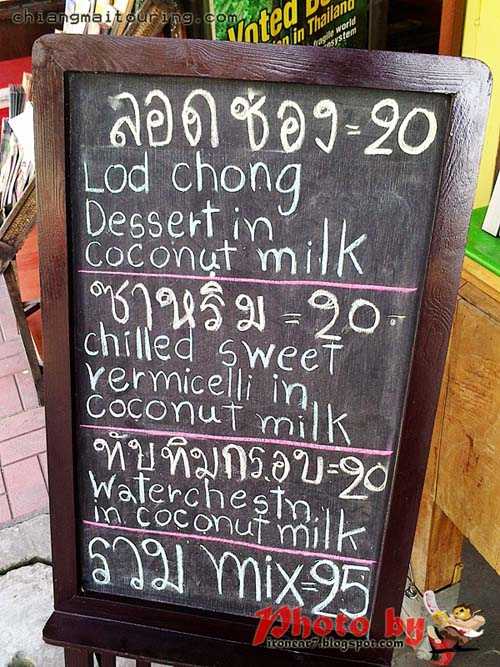 chiangmaitouring.com
Voted Be
in Thailand
fragile world
ecosystem
ลอดช่อง = 20
Lod chong
Dessert in
coconut milk
ซาหริ่ม = 20.-
chilled sweet
vermicelli in
coconut milk
ทับทิมกรอบ = 20
Waterchestn
in coconut milk
รวม mix = 25
Photo by
ironcar7.blogspot.com